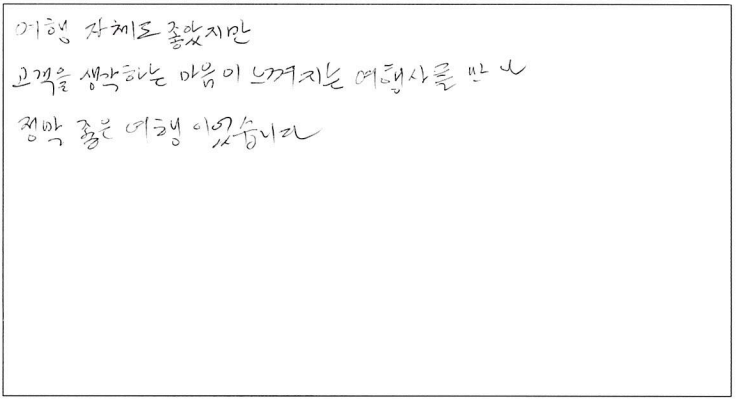 여행 자체도 좋았지만
고객을 생각하는 마음이 느껴지는 여행사를 만나
정말 좋은 여행 이었습니다